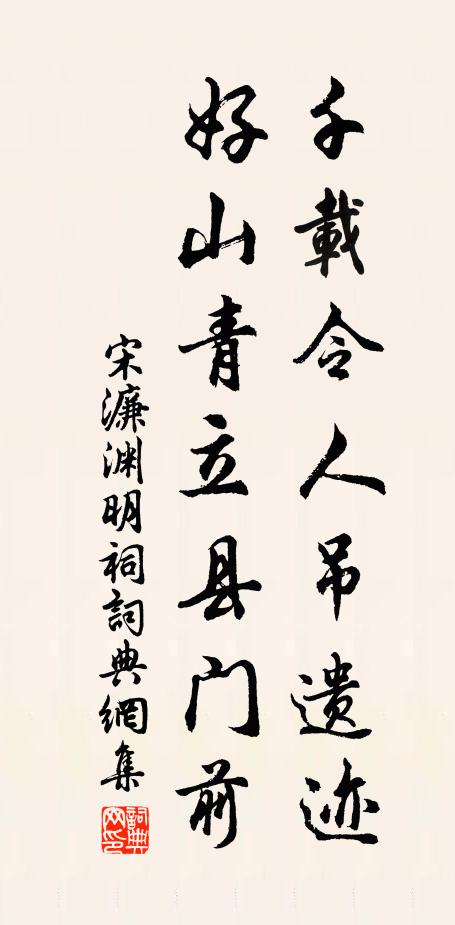 千載令人吊遗迹
好山青立县门前
宋濂渊明祠詞典網集
詞典网印